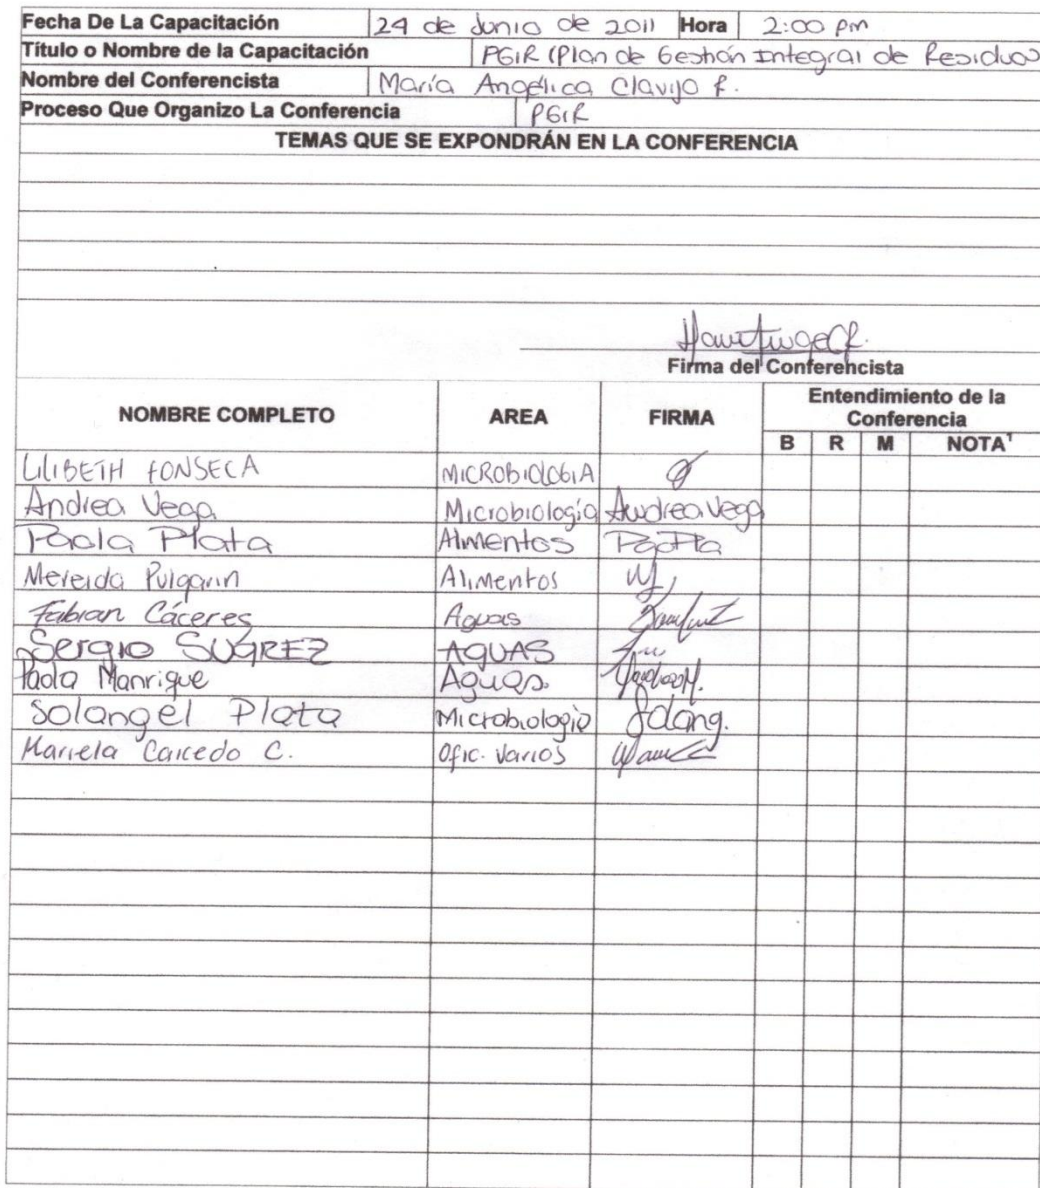 Fecha De La Capacitación 24 de Junio de 2011 Hora 2:00 pm
Título o Nombre de la Capacitación PGIR (Plan de Gestión Integral de Residuos)
Nombre del Conferencista María Angélica Clavijo F.
Proceso Que Organizo La Conferencia PGIR
TEMAS QUE SE EXPONDRÁN EN LA CONFERENCIA
Firma del Conferencista
NOMBRE COMPLETO AREA FIRMA Entendimiento de la Conferencia
B R M NOTA¹
LILIBETH FONSECA MICROBIOLOGIA
Andrea Vega Microbiología Andrea Vega
Paola Plata Alimentos
Mereida Pulgarin Alimentos
Fabian Cáceres Aguas
Sergio SUAREZ AGUAS
Paola Manrique Aguas
Solangel Plata Microbiologia Solang.
Mariela Caicedo C. Ofic. Varios